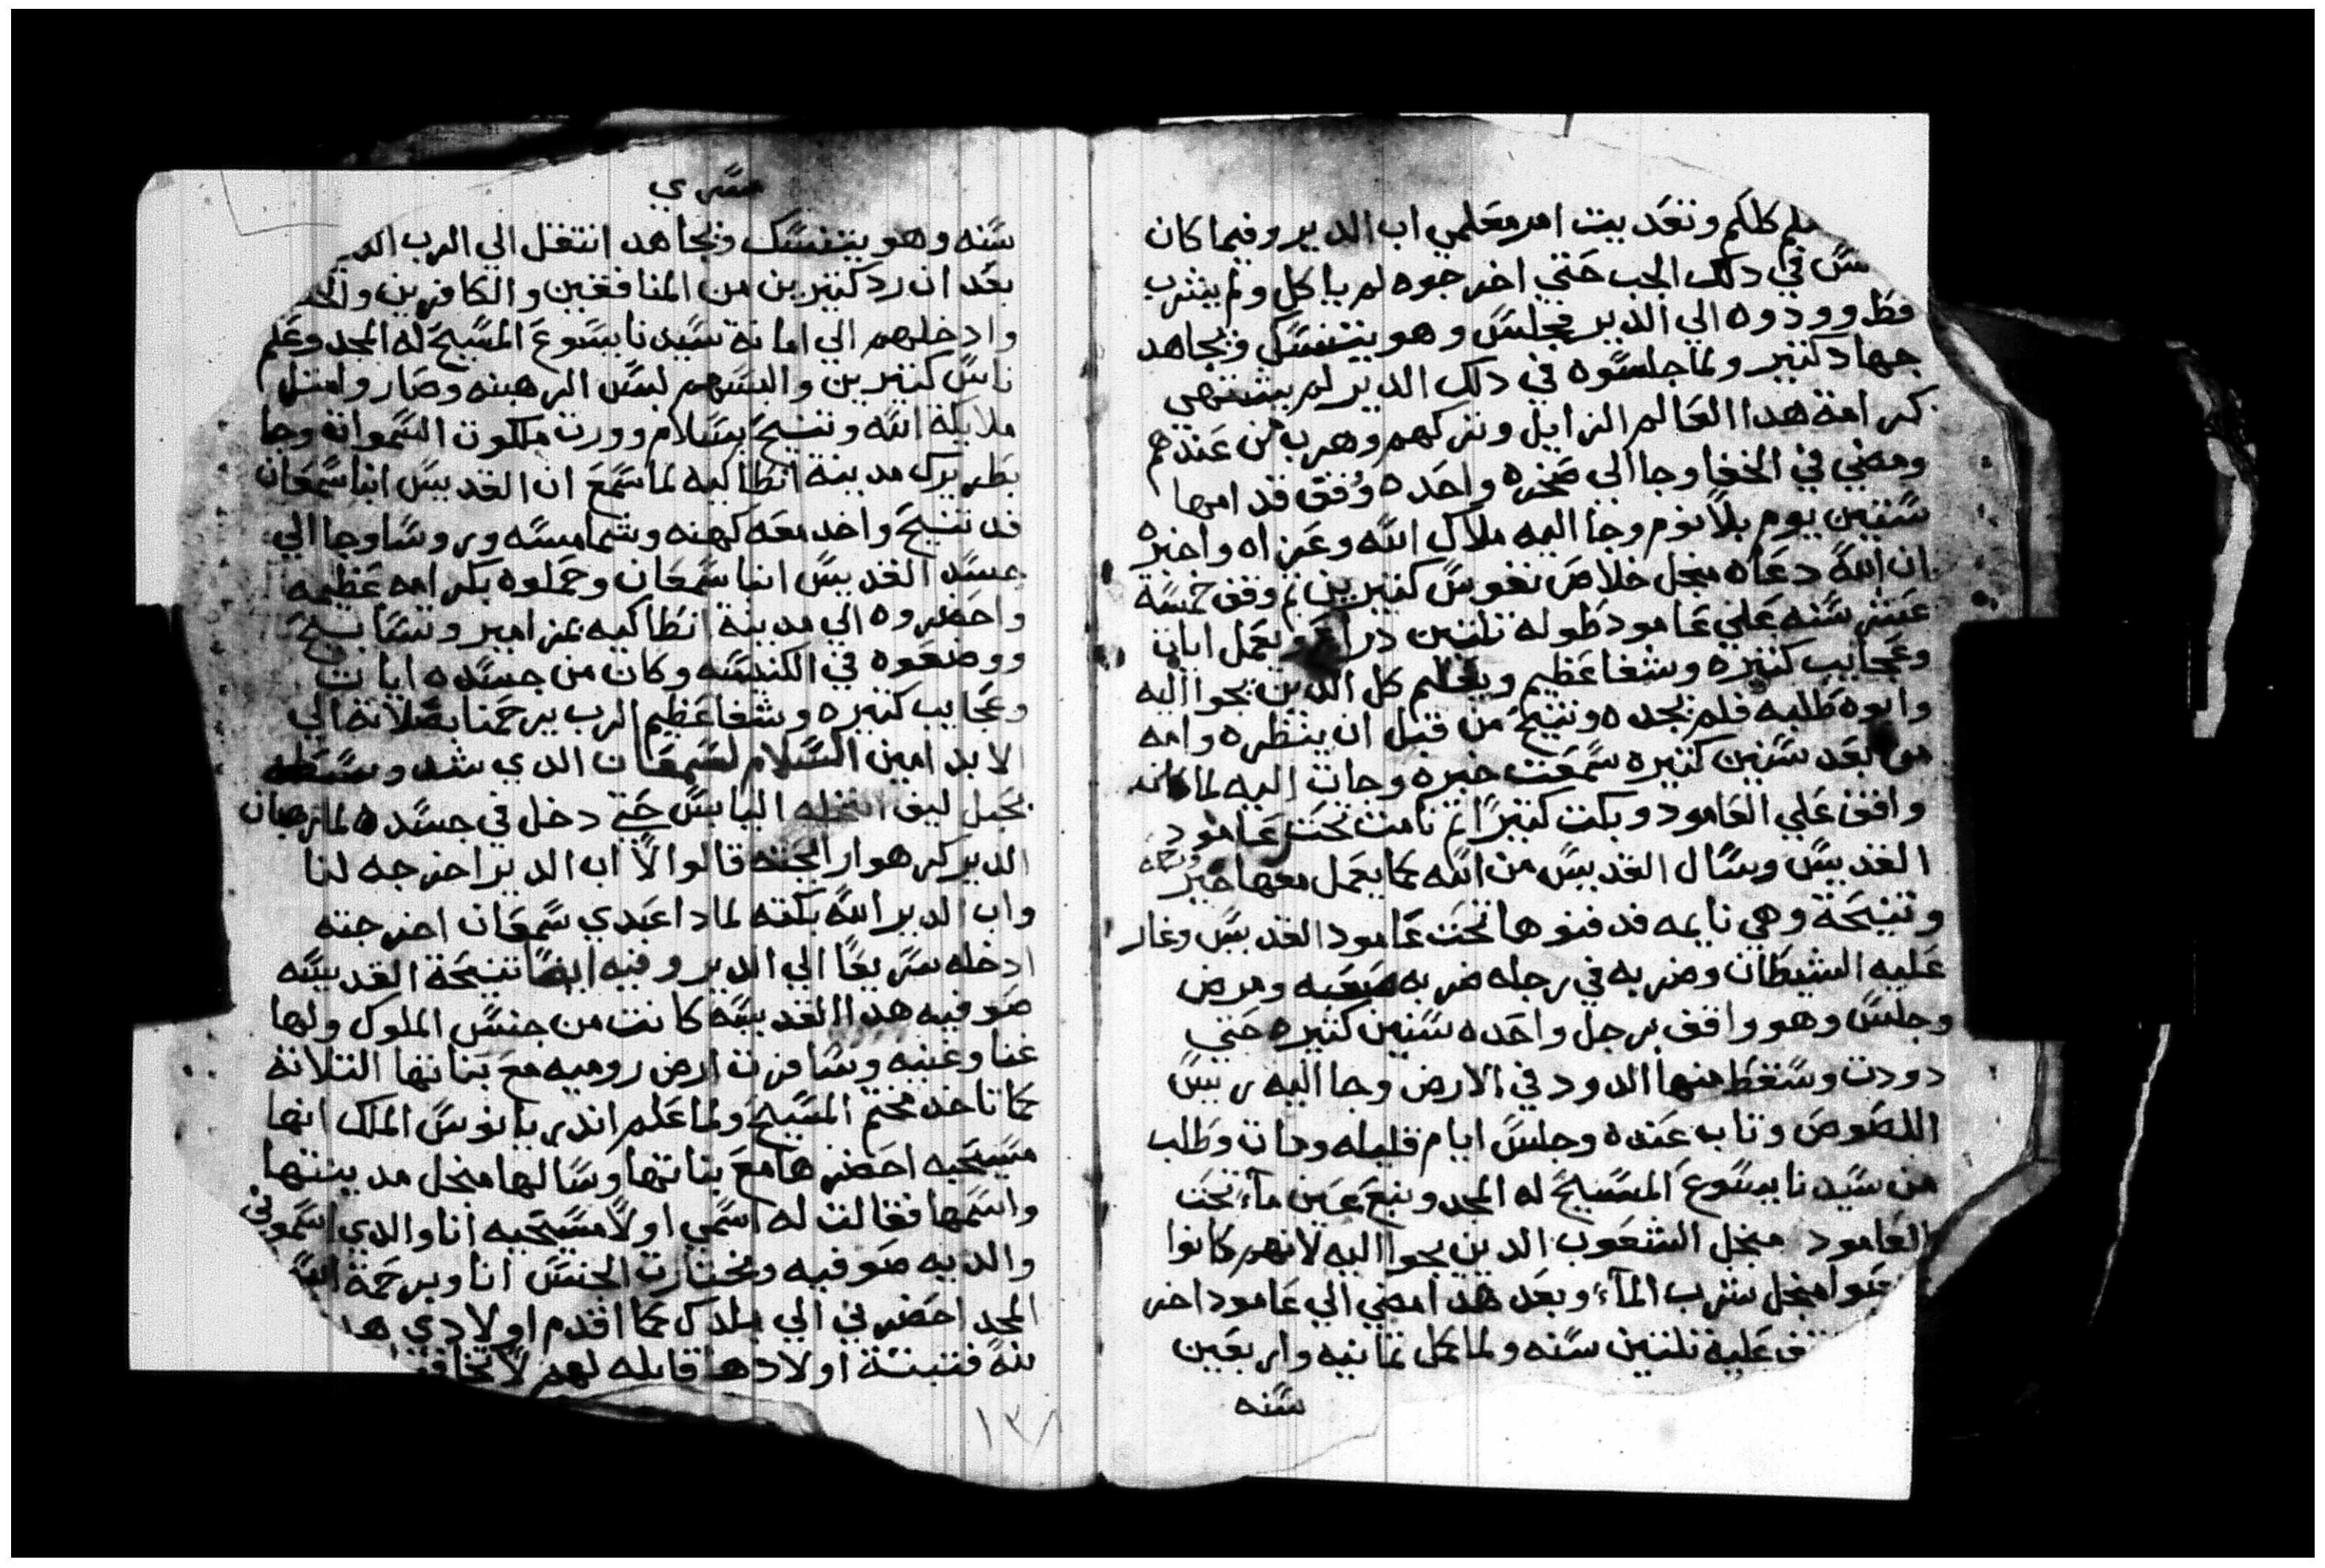 كلكم وتعديت امر معلمي اب الدير وفيما كان
في دلك الجب حتي اخرجوه لم ياكل ولم يشرب
قط وودوه الي الدير فجلس وهو يتنسك ويجاهد
جهاد كتير ولما جلسوه في دلك الدير لم يشتهي
كرامة هدا العالم الزايل وتركهم وهرب من عندهم
ومضي في الخفا وجا الي صخره واحده وقف قدامها
ستين يوم بلا نوم وجا اليه ملاك الله وعزاه واخبره
ان الله دعاه منجل خلاص نفوس كتيرين تم وقف خمسة
عشر سنه علي عامود طوله تلتين دراع يعمل ايات
وعجايب كتيره وشفا عظيم ويعلم كل الدين يجوا اليه
وابوه طلبه فلم يجده وتنيح من قبل ان ينظره وامه
من بعد سنين كتيره سمعت خبره وجات اليه لما كان
واقف علي العامود وبكت كتيرا تم نامت تحت عامود
القديس وسال القديس من الله كما يعمل معها خير
وتنيحة وهي نايمه فدفنوها تحت عامود القديس وغار
عليه الشيطان وضربه في رجله ضربه صعبه ومرض
وجلس وهو واقف برجل واحده سنين كتيره حتي
دودت وسقط منها الدود في الارض وجا اليه ريس
اللصوص وتاب عنده وجلس ايام قليله ومات وطلب
من سيدنا يسوع المسيح له المجد ونبع عين مآء تحت
العامود منجل الشعوب الدين يجوا اليه لانهم كانوا
منجل شرب المآء وبعد هدا مضي الي عامود اخر
عليه تلتين سنه ولما كمل تمانيه واربعين
سنه
مسري
سنه وهو يتنسك ويجاهد انتقل الي الرب
بعد ان رد كتيرين من المنافقين والكافرين
وادخلهم الي امانة سيدنا يسوع المسيح له المجد وعلم
ناس كتيرين والبسهم لبس الرهبنه وصار وامتل
ملايكة الله وتنيح بسلام وورت ملكوت السموات وجا
بطريرك مدينة انطاكيه لما سمع ان القديس انبا سمعان
قد تنيح واخد معه كهنه وشمامسه وروسا وجا الي
جسد القديس انبا سمعان وحملوه بكرامه عظيمه
واحضروه الي مدينة انطاكيه بمزامير وتسابيح
ووضعوه في الكنسه وكان من جسده ايات
وعجايب كتيره وشفا عظيم الرب يرحمنا بصلاته الي
الابد امين السلام لسمعان الدي شد وسطه
بحبل ليف النخله اليابس حتي دخل في جسده لما رهبان
الدير كرهوا رايحته قالوا لاب الدير اخرجه لنا
واب الدير الله بكته لمادا عبدي سمعان اخرجته
ادخله سريعا الي الدير وفيه ايضا تنيحة القديسه
صوفيه هدا القديسه كانت من جنس الملوك ولها
غنا وغنيه وسافرت ارض روميه مع بناتها التلاته
كما تاخد ختم المسيح ولما علم اندريانوس الملك انها
مسيحيه احضرها مع بناتها وسالها منجل مدينتها
واسمها فقالت له اسمي اولا مسيحيه انا والدي اسموني
والديه صوفيه ومختارت الجنس انا وبرحمة الله
المجد احضرني الي بلدك كما اقدم اولادي
فتبتة اولادها قايله لهم لا
١٣٨